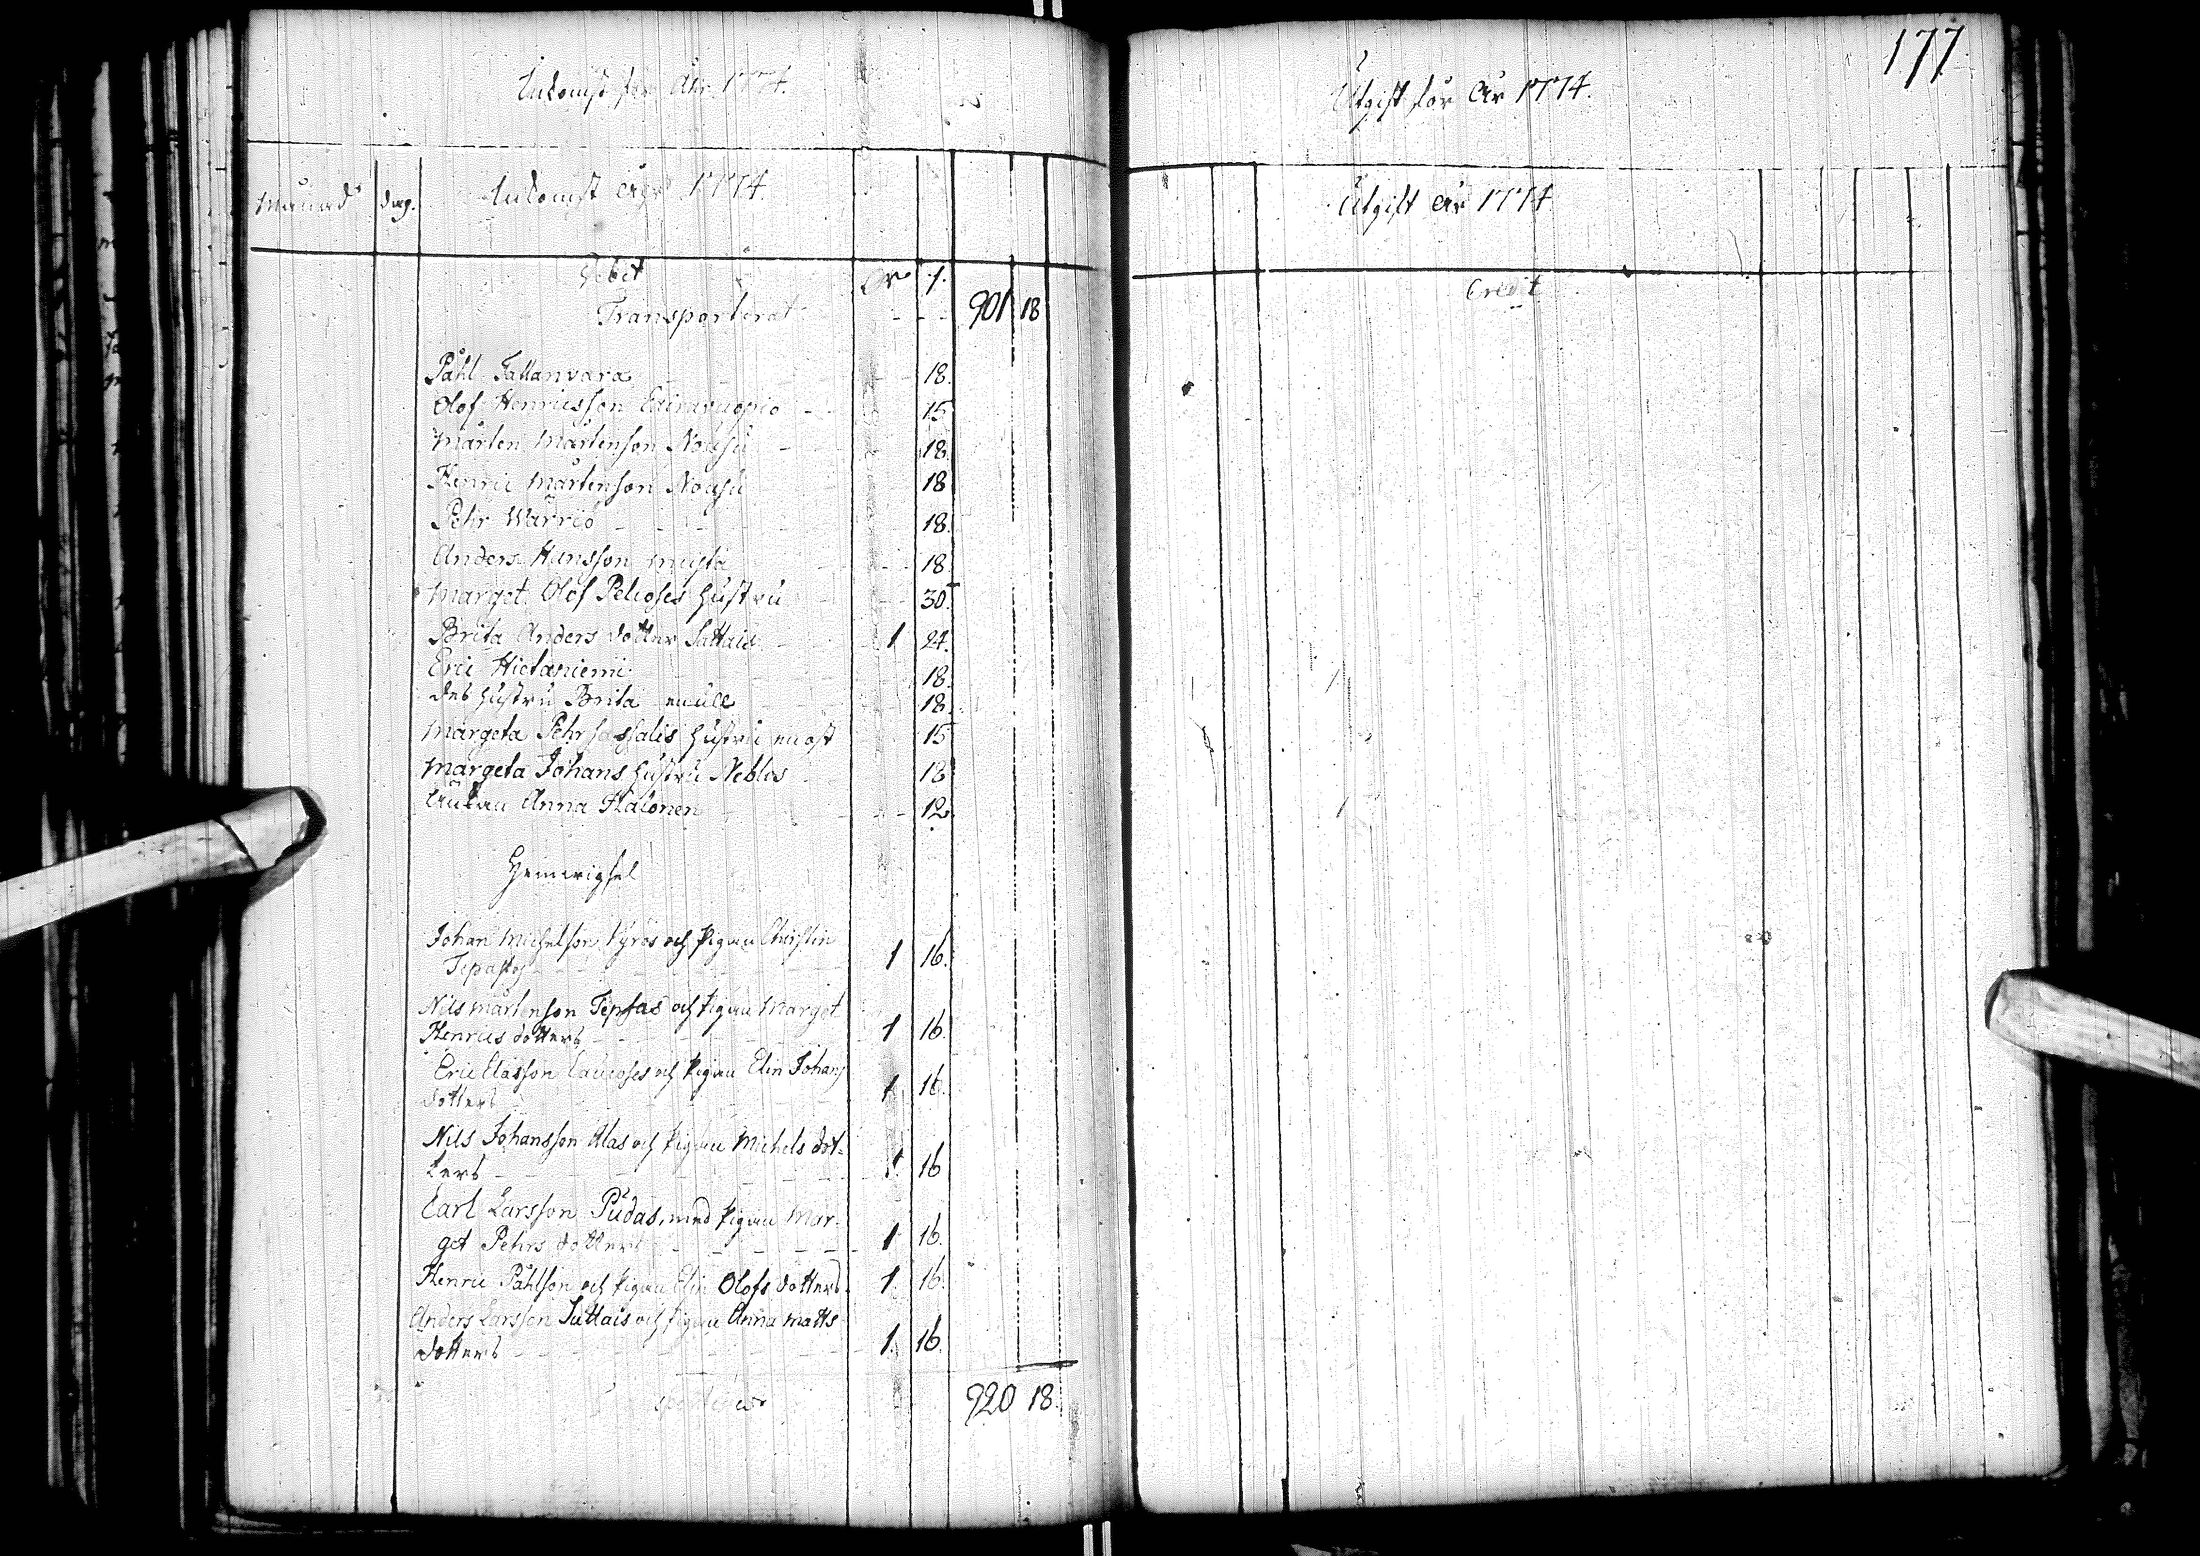 Inkomst för Åhr 1774.
Månad
dag.
Inkomst åhr 1774.
Debet
Transporterat - - - 901 18
Påhl Tallanvara 18.
Olof Henricsson 15
Mårten Mårtenson Nousu 18.
Henric Mårtenson Nousu 18
Pehr Warrio 18.
Anders Hansson musta 18
Marget Olof Pelcoses hustru 30.
Brita Anders dotter Sattais 1 24.
Eric Hietaniemi 18.
Des hustru Brita 18
Margeta Pehr hustru 15
Margeta Johans hustru 18
Anna Halonen 12.
Hemvigsel
Johan Michelson Kyrös och Pigan Christin
Tepasto 1 16.
Nils Mårtenson Tepsas och Pigan Marget
Henrics dotters 1 16.
Eric Elasson och Pigan Elin Johans
dotters 1 16.
Nils Johansson Alas och Pigan Michels dot-
ters 1. 16
Carl Larsson Pudas, med Pigan Mar-
get Pehrs dotters 1 16.
Henric Påhlson och Pigan Elin Olofs dotters 1. 16.
Anders Larsson Sattais och Pigan Anna Matts
dotters 1. 16.
920 18.
177
Utgift för År 1774.
Utgift År 1774
Credit